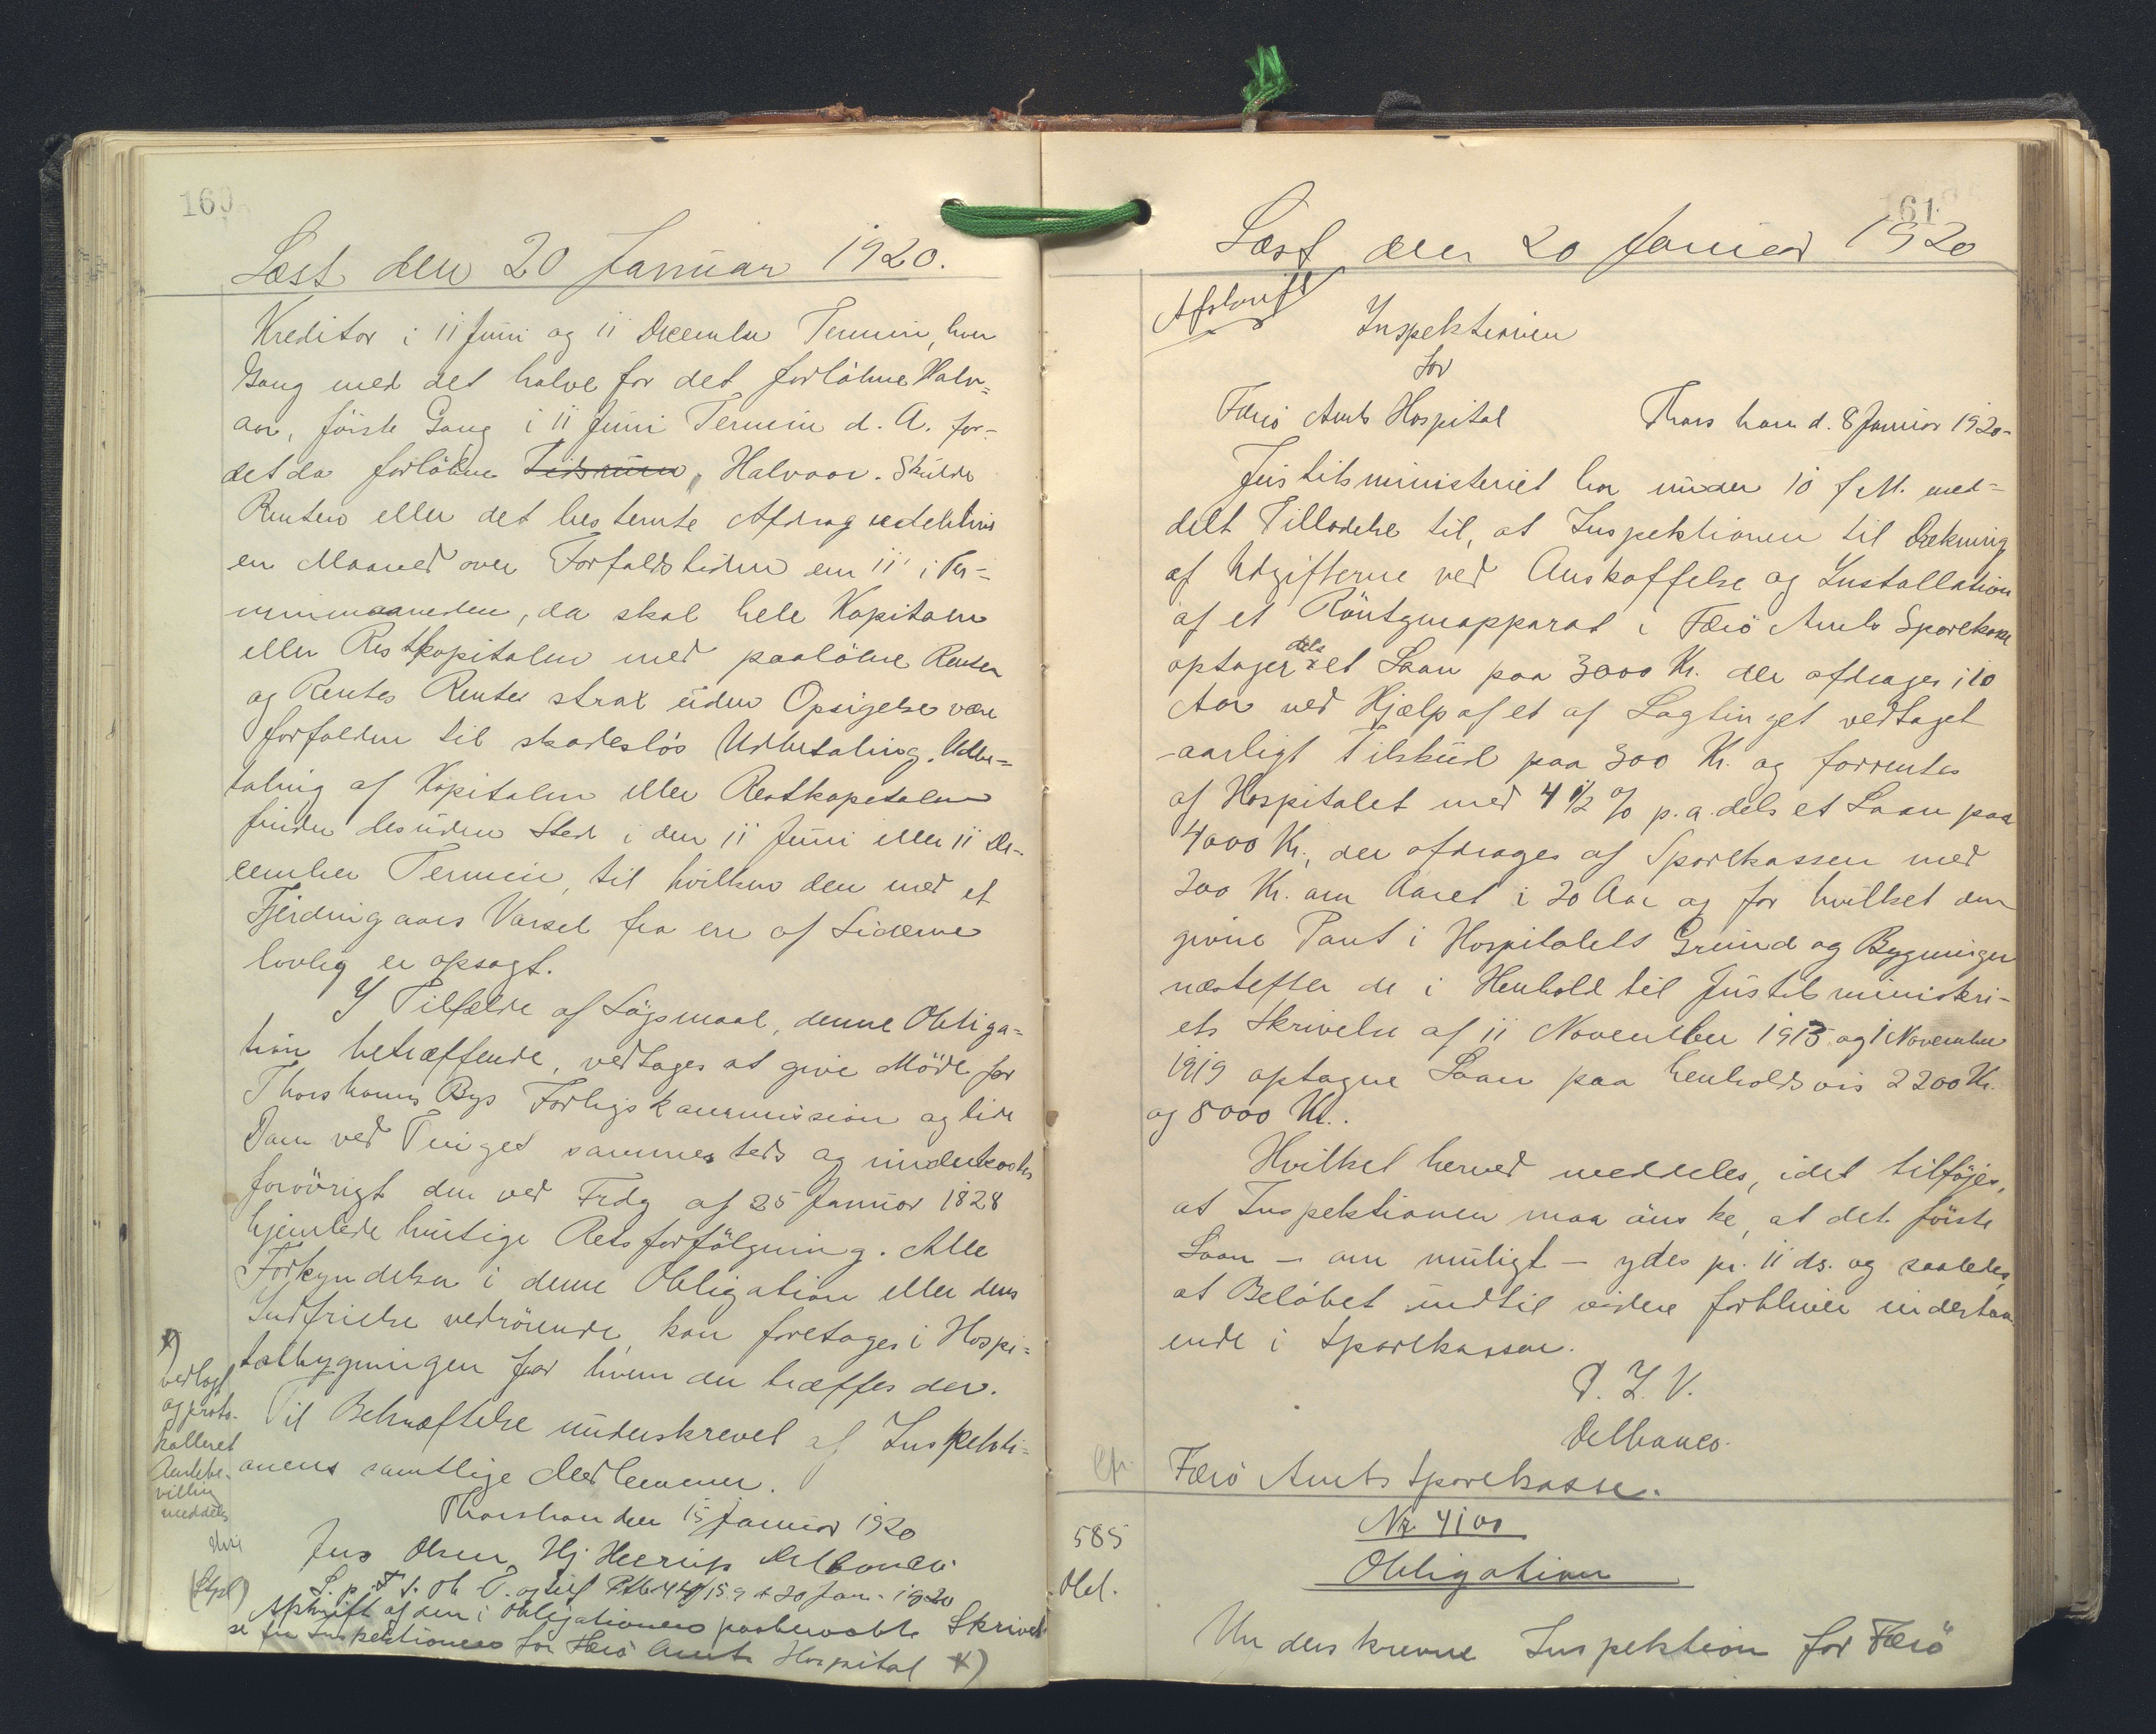 160
Læst den 20 Januar 1920.
Kreditor i 11 Juni og 11 December Termin, hver
Gang med det halve for det forløbne Halv=
aar, første Gang i 11 Juni Termin d. A. for
det da forløbne Tidsrum, Halvaar. Skulde
Renten eller det bestemte Afdrag udeblive
en Maaned over Forfaldstiden em 11' i Ter=
minmaaneden, da skal hele Kapitalen
eller Restkapitalen med paaløbne Renter
og Rentes Renter strax uden Opsigelse være
forfalden til skadesløs Udbetaling. Udbe=
taling af Kapitalen eller Restkapetalen
finder desuden Sted i den 11 Juni eller 11 De-
cember Termin, til hvilken den med et
Fjerdingaars Varsel fra en af Siderne
lovlig er opsagt.
I Tilfælde af Søgsmaal, denne Obliga=
tion betræffende, vedtages at give Møde for
Thorshavns Bys Forligskommission og lide
Dom ved Tinget sammesteds og underkastes
forøvrigt den ved Frdg af 25 Januar 1828
hjemlede hurtige Retsforfølgning. Alle
Forkyndelser i denne Obligation eller dens
Indfrielse vedrørende, kan foretages i Hospi=
talbygningen for hvem der træffes der.
Til Bekræftelse underskrevet af Inspekti=
onens samtlige Medlemmer.
Thorshavn den 15 Januar 1920
Jens Olsen Hj Heerup Delbanco
og 20 Jan. 1920
Afskrift af den i Obligationens paaberaabte Skrivel
se fra Inspektionen for Færø Amts Hospital X)
X)
vedlagt
og proto-
kolleret
meddeles
(Stpl)
161
Læst den 20 Januar 1920
Afskrift
Inspektionen
for
Færø Amts Hospital Thorshavn d. 8 Januar 1920-
Justitsministeriet har under 10 f M. med=
delt Tilladelse til, at Inspektionen til Dækning
af Udgifterne ved Anskaffelse og Installation
af et Røntgenapparat i Færø Amts Sparekasse
optager dels et Laan paa 3000 Kr. der afdrages i 10
Aar ved Hjælp af et af Lagtinget vedtaget
aarligt Tilskud paa 300 Kr. og forrentes
af Hospitalet med 4 1/2 % p.a. dels et Laan paa
4000 Kr., der afdrages af Sparekassen med
200 Kr. om Aaret i 20 Aar og for hvilket der
gives Pant i Hospitalets Grund og Bygninger
næstefter de i Henhold til Justitsministeri-
ets Skrivelse af 11 November 1913 og 1 November
1919 optagne Laan paa henholdsvis 2200 Kr.
og 5000 Kr..
Hvilket herved meddeles, idet tilføjes,
at Inspektionen maa ønske, at det første
Laan - om muligt - ydes pr. 11 ds. og saaledes,
at Beløbet indtil videre forbliver indestaa
ende i Sparekassen.
P. I. V.
Delbanco.
Færø Amts Sparekasse.
585
Obl.
Nr 4100
Obligation
Underskrevne Inspektion for Færø